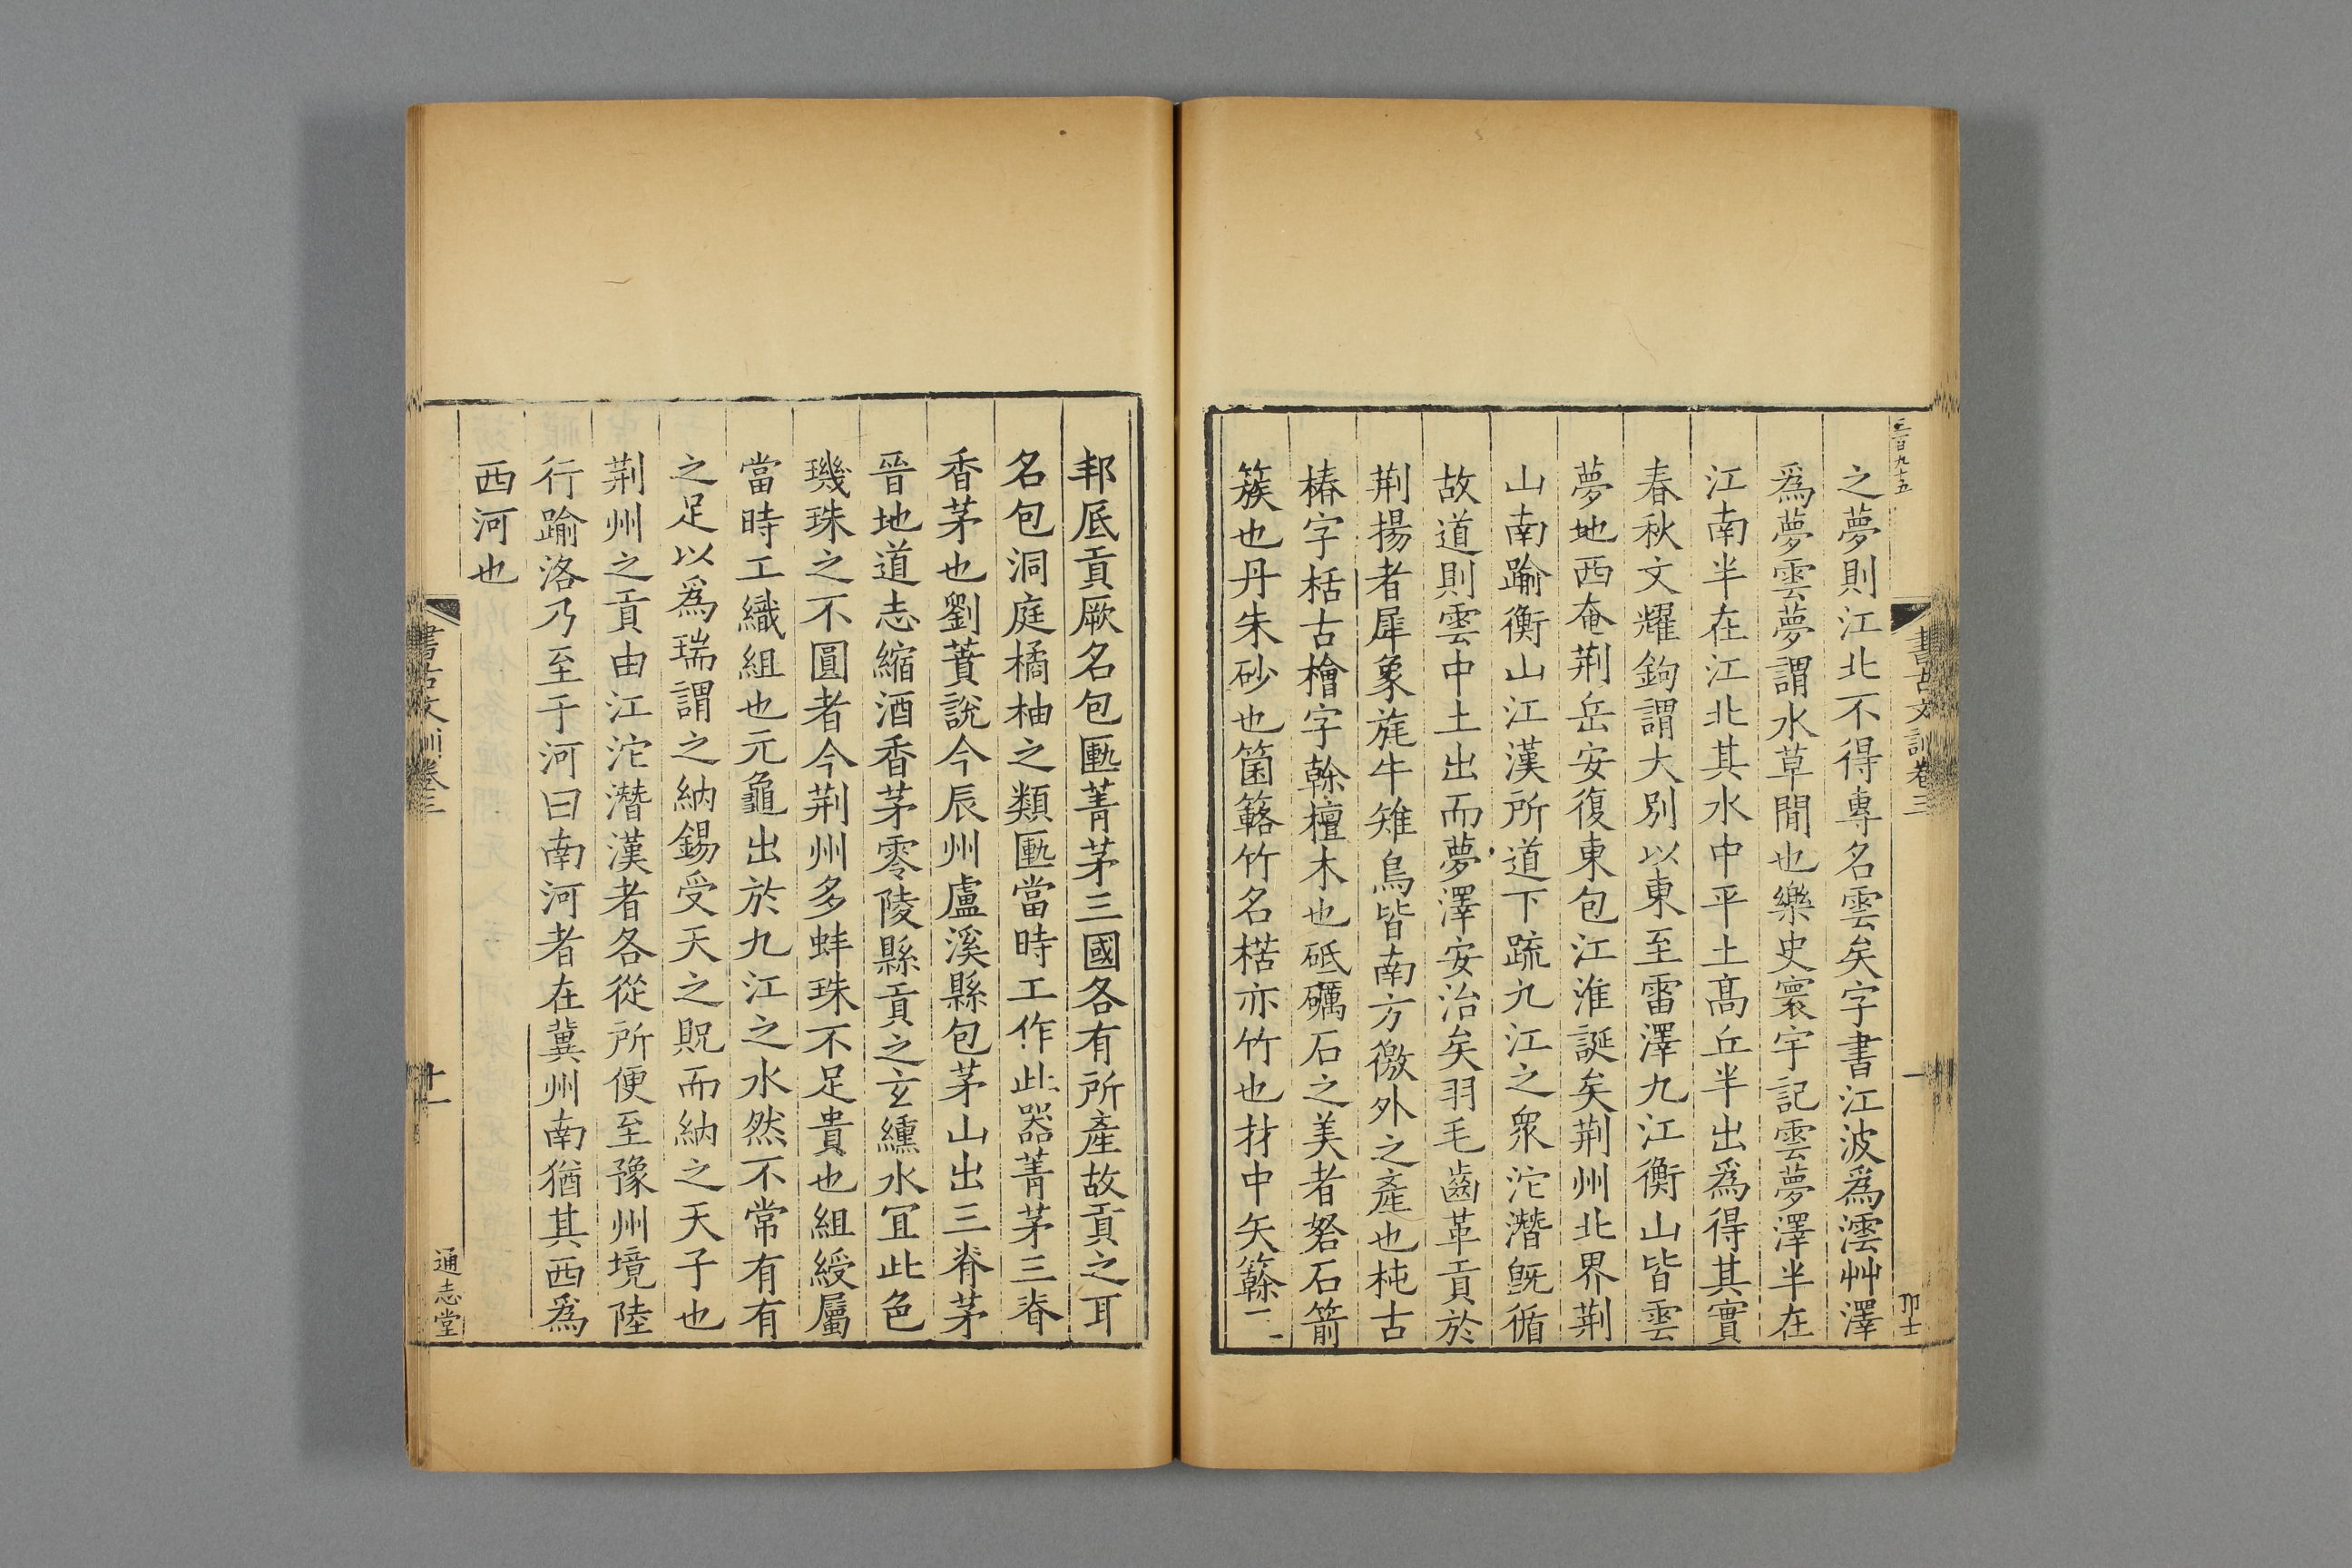 三百九十五
書古文訓卷三
一
之夢則江北不得專名雲矣字書江波爲澐艸澤
爲夢雲夢謂水草閒也樂史寰宇記雲夢澤半在
江南半在江北其水中平土髙丘半出爲得其實
春秋文耀鉤謂大別以東至雷澤九江衡山皆雲
夢地西奄荆岳安復東包江淮誕矣荆州北界荆
山南踰衡山江漢所道下疏九江之衆沱潛旣循
故道則雲中土出而夢澤安治矣羽毛齒革貢於
荆揚者犀象旄牛雉鳥皆南方徼外之產也杶古
椿字栝古檜字榦檀木也砥礪石之美者砮石箭
簇也丹朱砂也箘簵竹名楛亦竹也材中矢簳一一
邦底貢厥名包匭菁茅三國各有所產故貢之耳
名包洞庭橘柚之類匭當時工作此器菁茅三脊
香茅也劉蕡說今辰州盧溪縣包茅山出三脊茅
晉地道志縮酒香茅零陵縣貢之玄纁水冝此色
璣珠之不圓者今荆州多蚌珠不足貴也組綬屬
當時工織組也元龜出於九江之水然不常有有
之足以爲瑞謂之納錫受天之貺而納之天子也
荆州之貢由江沱潛漢者各從所便至豫州境陸
行踰洛乃至于河曰南河者在冀州南猶其西爲
西河也
書古文訓卷三
十一
通志堂